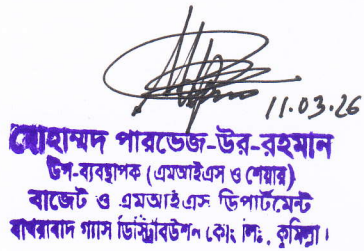 11.03.26
মোহাম্মদ পারভেজ-উর-রহমান
উপ-ব্যবস্থাপক (এমআইএস ও শেয়ার)
বাজেট ও এমআইএস ডিপার্টমেন্ট
বাখরাবাদ গ্যাস ডিস্ট্রিবিউশন কোঃ লিঃ, কুমিল্লা।